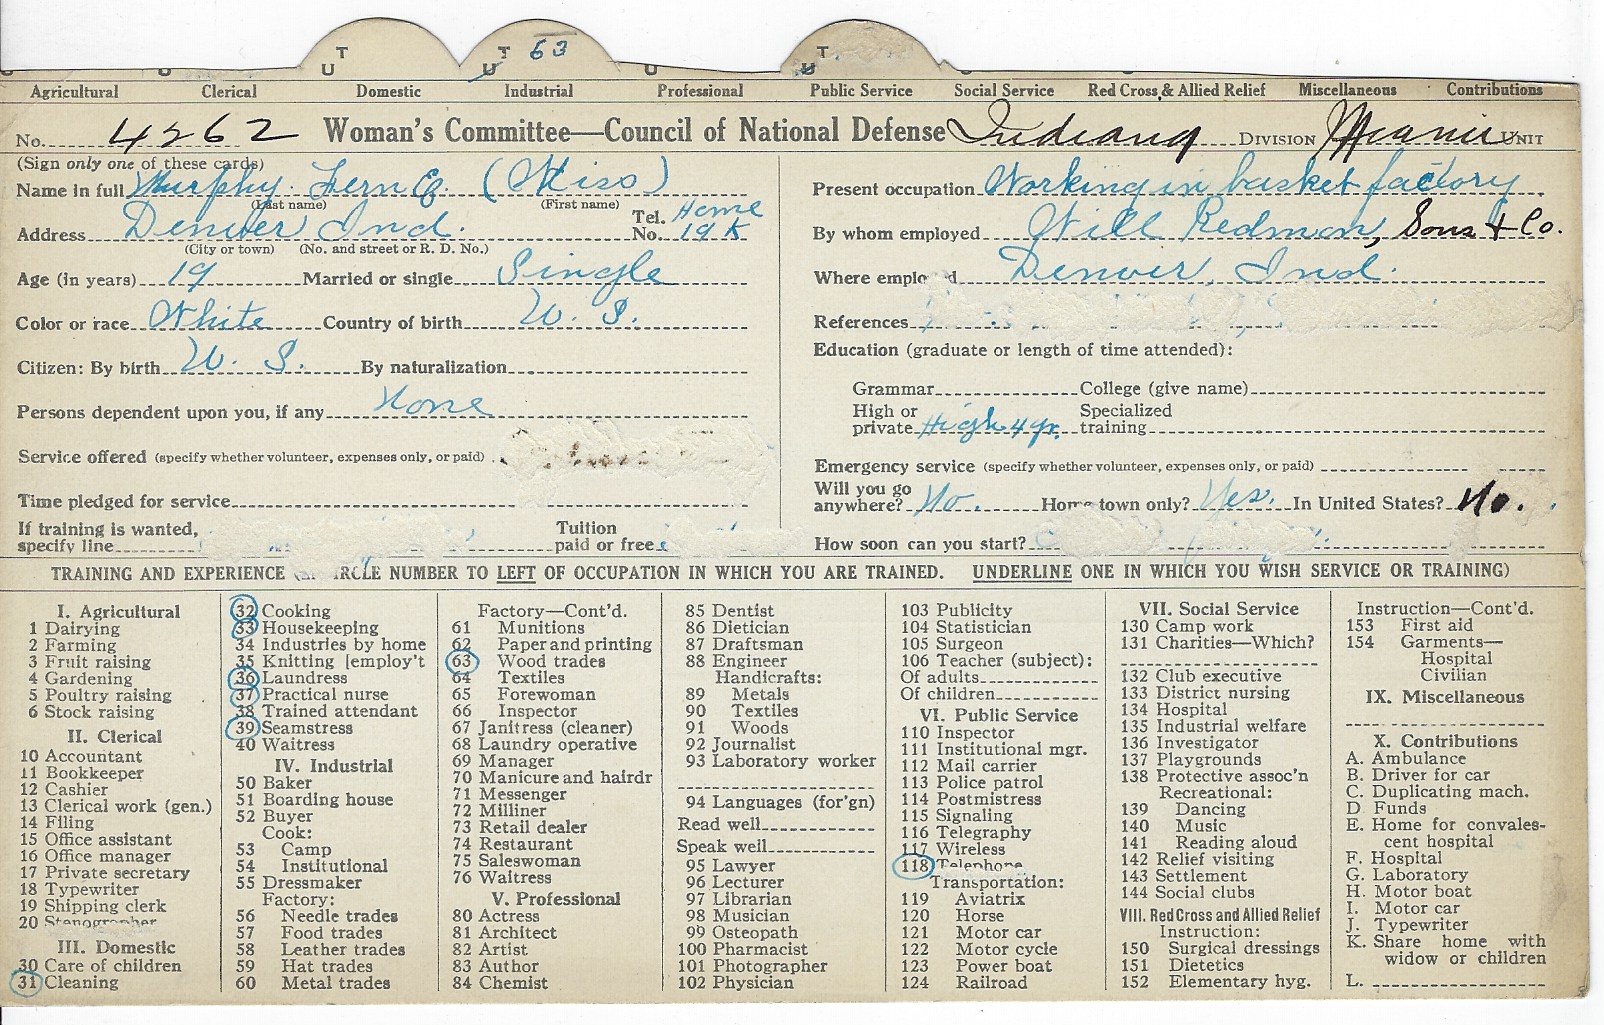 T U T U 63 U T U
Agricultural Clerical Domestic Industrial Professional Public Service Social Service Red Cross & Allied Relief Miscellaneous Contributions
No. 4262 Woman's Committee—Council of National Defense Indiana DIVISION Miami UNIT
(Sign only one of these cards)
Name in full Murphy Fern E. (Miss)
(Last name) (First name)
Address Denver Ind. Tel. No. Home 19 K
(City or town) (No. and street or R. D. No.)
Age (in years) 19 Married or single Single
Color or race White Country of birth U. S.
Citizen: By birth U. S. By naturalization
Persons dependent upon you, if any None
Service offered (specify whether volunteer, expenses only, or paid)
Time pledged for service
If training is wanted, specify line Tuition paid or free
Present occupation Working in basket factory
By whom employed Will Redmon, Sons & Co.
Where employed Denver, Ind.
References
Education (graduate or length of time attended):
Grammar College (give name)
High or private High 4 yr. Specialized training
Emergency service (specify whether volunteer, expenses only, or paid)
Will you go anywhere? No. Home town only? Yes. In United States? No.
How soon can you start?
TRAINING AND EXPERIENCE CIRCLE NUMBER TO LEFT OF OCCUPATION IN WHICH YOU ARE TRAINED. UNDERLINE ONE IN WHICH YOU WISH SERVICE OR TRAINING)
I. Agricultural
1 Dairying
2 Farming
3 Fruit raising
4 Gardening
5 Poultry raising
6 Stock raising
II. Clerical
10 Accountant
11 Bookkeeper
12 Cashier
13 Clerical work (gen.)
14 Filing
15 Office assistant
16 Office manager
17 Private secretary
18 Typewriter
19 Shipping clerk
20 Stenographer
III. Domestic
30 Care of children
31 Cleaning
32 Cooking
33 Housekeeping
34 Industries by home
35 Knitting [employ't
36 Laundress
37 Practical nurse
38 Trained attendant
39 Seamstress
40 Waitress
IV. Industrial
50 Baker
51 Boarding house
52 Buyer
Cook:
53 Camp
54 Institutional
55 Dressmaker
Factory:
56 Needle trades
57 Food trades
58 Leather trades
59 Hat trades
60 Metal trades
Factory—Cont'd.
61 Munitions
62 Paper and printing
63 Wood trades
64 Textiles
65 Forewoman
66 Inspector
67 Janitress (cleaner)
68 Laundry operative
69 Manager
70 Manicure and hairdr
71 Messenger
72 Milliner
73 Retail dealer
74 Restaurant
75 Saleswoman
76 Waitress
V. Professional
80 Actress
81 Architect
82 Artist
83 Author
84 Chemist
85 Dentist
86 Dietician
87 Draftsman
88 Engineer
Handicrafts:
89 Metals
90 Textiles
91 Woods
92 Journalist
93 Laboratory worker
94 Languages (for'gn)
Read well
Speak well
95 Lawyer
96 Lecturer
97 Librarian
98 Musician
99 Osteopath
100 Pharmacist
101 Photographer
102 Physician
103 Publicity
104 Statistician
105 Surgeon
106 Teacher (subject):
Of adults
Of children
VI. Public Service
110 Inspector
111 Institutional mgr.
112 Mail carrier
113 Police patrol
114 Postmistress
115 Signaling
116 Telegraphy
117 Wireless
118 Telephone
Transportation:
119 Aviatrix
120 Horse
121 Motor car
122 Motor cycle
123 Power boat
124 Railroad
VII. Social Service
130 Camp work
131 Charities—Which?
132 Club executive
133 District nursing
134 Hospital
135 Industrial welfare
136 Investigator
137 Playgrounds
138 Protective assoc'n
Recreational:
139 Dancing
140 Music
141 Reading aloud
142 Relief visiting
143 Settlement
144 Social clubs
VIII. Red Cross and Allied Relief
Instruction:
150 Surgical dressings
151 Dietetics
152 Elementary hyg.
Instruction—Cont'd.
153 First aid
154 Garments—
Hospital
Civilian
IX. Miscellaneous
X. Contributions
A. Ambulance
B. Driver for car
C. Duplicating mach.
D Funds
E. Home for convales-
cent hospital
F. Hospital
G. Laboratory
H. Motor boat
I. Motor car
J. Typewriter
K. Share home with
widow or children
L.